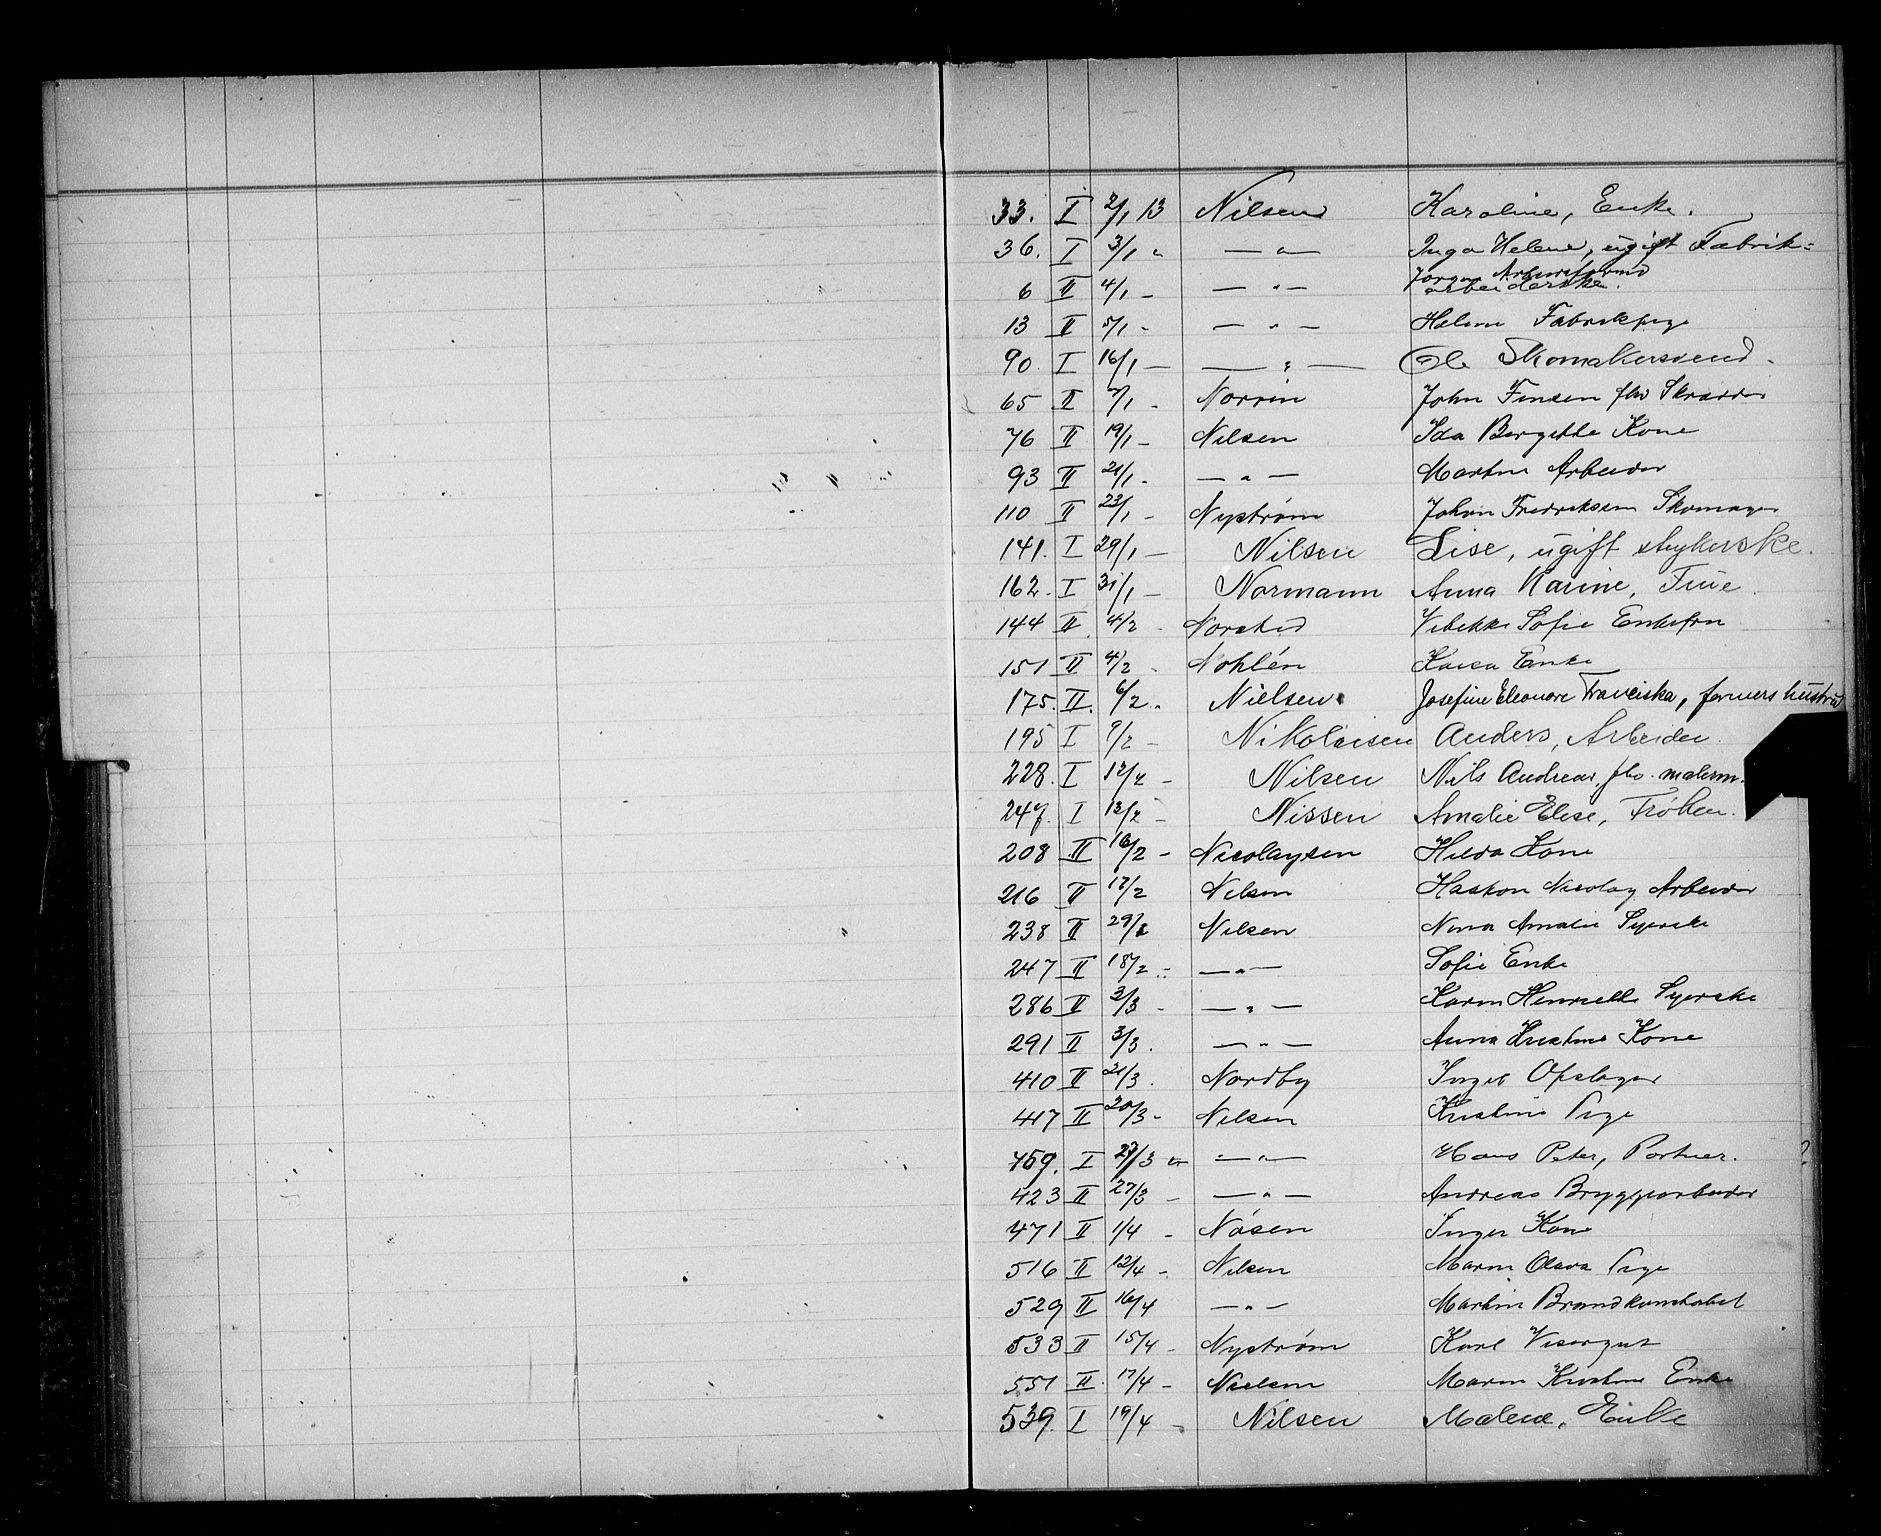 33. I 2/1 13 Nilsen Karoline, Enke.
36. I 3/1 " — " — Inga Helene, ugift Fabrik=
arbeiderske.
6 II 4/1 - — " — Jørgen Arbeidsformd
13 II 5/1 - — " — Helene Fabrikpige
90. I 16/1 — — " — Ole Skomakersvend.
65 II /1 - Norrin John Finsen fhv Skrædder
76 II 19/1 - Nilsen Ida Bergitte Kone
93 II 21/1 - — " — Martin Arbeider
110 II 23/1 - Nystrøm Johan Fredriksen Skomager
141. I 29/1 — Nilsen Lise, ugift strykerske.
162. I 31/1 — Normann Anna Karine, Frue.
144 II 4/2 - Norsted Vibekke Sofie Enkefru
151 II 4/2 - Nohlén Kaisa Enke
175. II. 6/2 - Nielsen Josefine Eleonore Franciska, formers hustru
195 I 9/2 - Nikolaisen Anders, Arbeider.
228. I 12/2 - Nilsen Nils Andreas, fhv. malerm.
247. I 13/2 - Nissen Amalie Elise, Frøken.
208 II 16/2 - Nicolaysen Hilda Kone
216 II 17/2 Nilsen Haakon Nicolay Arbeider
238 II 29/1 Nilsen Nina Amalie Syerske
247 II 18/2 - — " — Sofie Enke
286 II 3/3 - — " — Karen Henriette Syerske
291 II 3/3 . — " — Anna Kristine Kone
410 II 21/3 . Nordby Opslager
417 II 20/3 - Nilsen Kristine Pige
459. I 23/3 — " — Hans Peter, Portner. ?
423 II 27/3 - — " — Andreas Bryggearbeider
471 II 1/4 - Nøsen Inger Kone
516 II 12/4 - Nilsen Maren Olava Pige
529 II 16/4 — " — Martin Brandkonstabel
533 II 15/4 - Nystrøm Karl Visergut
551 II 17/4 - Nielsen Maren Kristine Enke
539. I 19/4 - Nilsen Malene, Enke